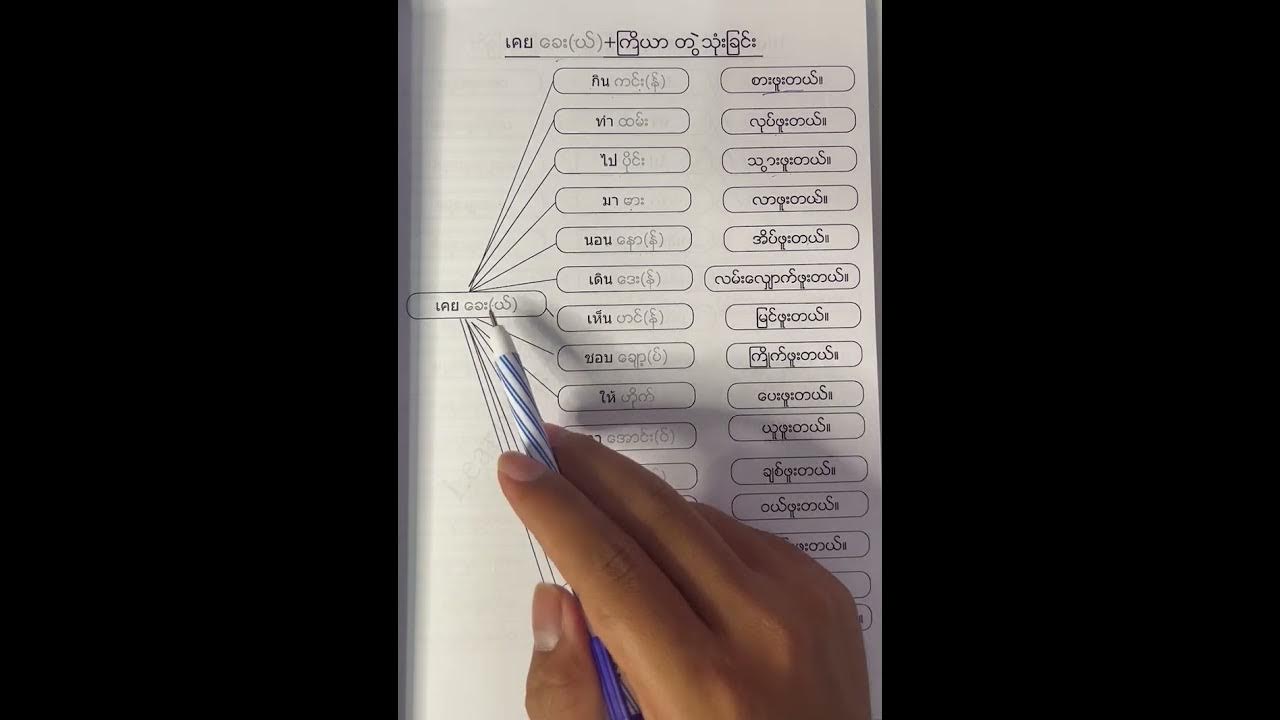 เคย ခေး(ယ်)+ကြိယာ တွဲသုံးခြင်း
กิน ကင်း(န်) စားဖူးတယ်။
ทำ ထမ်း လုပ်ဖူးတယ်။
ไป ပိုင်း သွားဖူးတယ်။
มา မား လာဖူးတယ်။
นอน နော(န်) အိပ်ဖူးတယ်။
เดิน ဒေး(န်) လမ်းလျှောက်ဖူးတယ်။
เคย ခေး(ယ်)
เห็น ဟင်(န်) မြင်ဖူးတယ်။
ชอบ ချော့(ပ်) ကြိုက်ဖူးတယ်။
ให้ ဟိုက် ပေးဖူးတယ်။
အောင်း(ဝ်) ယူဖူးတယ်။
ချစ်ဖူးတယ်။
ဝယ်ဖူးတယ်။
ဖူးတယ်။